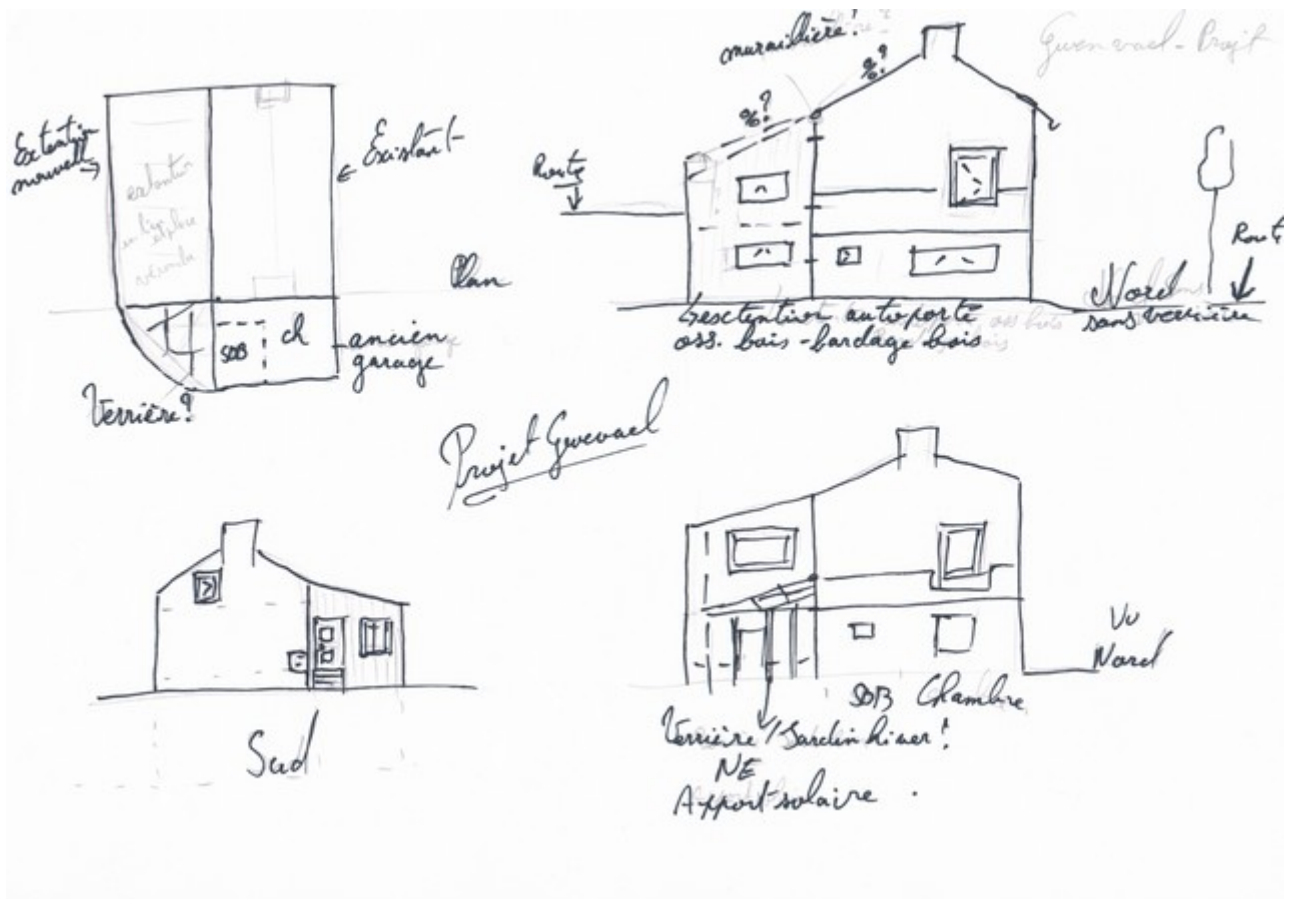 Extention
nouvelle
Existant
extention
Plan
SDB
ch
ancien
garage
Verrière?
muraillière?
Gwenvael - Projt
%?
%?
Route
Route
Nord
sans verrière
L'extention autoporté
oss. bois - bardage bois
Projet Gwevael
Sud
Vu
Nord
SDB Chambre
Verrière/Jardin hiver!
NE
Apport solaire